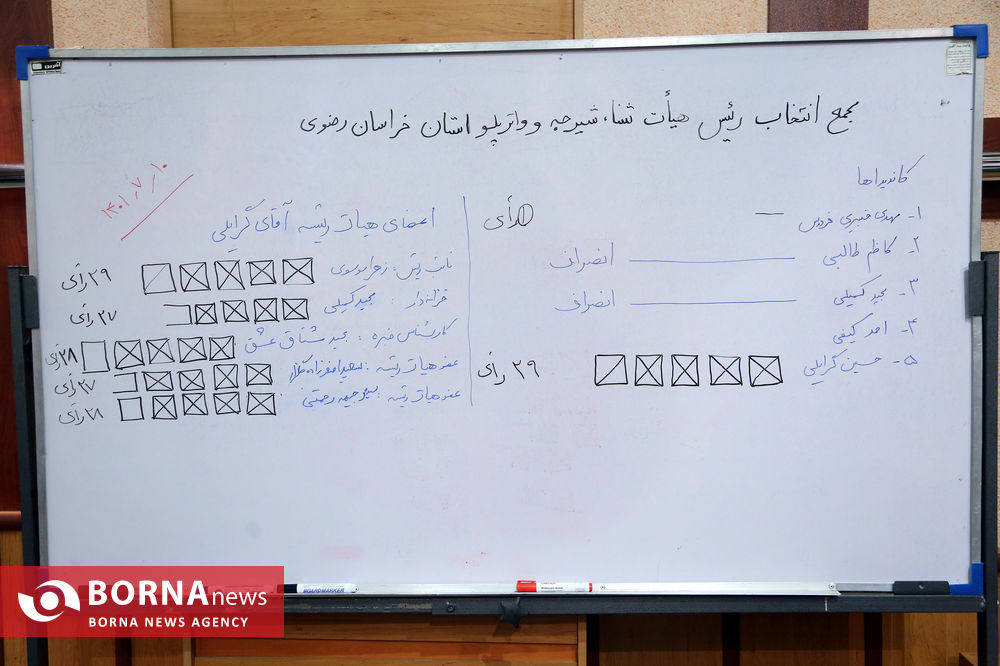 مجمع انتخاب رئیس هیأت شنا، شیرجه و واترپلو استان خراسان رضوی
۱۴۰۱٫۷٫۱۰
کاندیداها
۱- مهدی قنبری فردوس — ۱ رأی
۲- کاظم طالبی — انصراف
۳- مجید کمیلی — انصراف
۴- احد کیفی
۵- حسین گرایلی ۲۹ رأی
اعضای هیات رئیسه آقای گرایلی
نائب رئیس: زهرا موسوی ۲۹ رأی
خزانه‌دار: مجید کمیلی ۲۷ رأی
کارشناس خبره: مجید مشتاق عشق ۲۸ رأی
عضو هیات رئیسه: سعید ۲۷ رأی
عضو هیات رئیسه: رحمتی ۲۸ رأی
BOARDMARKER
BORNA news
BORNA NEWS AGENCY